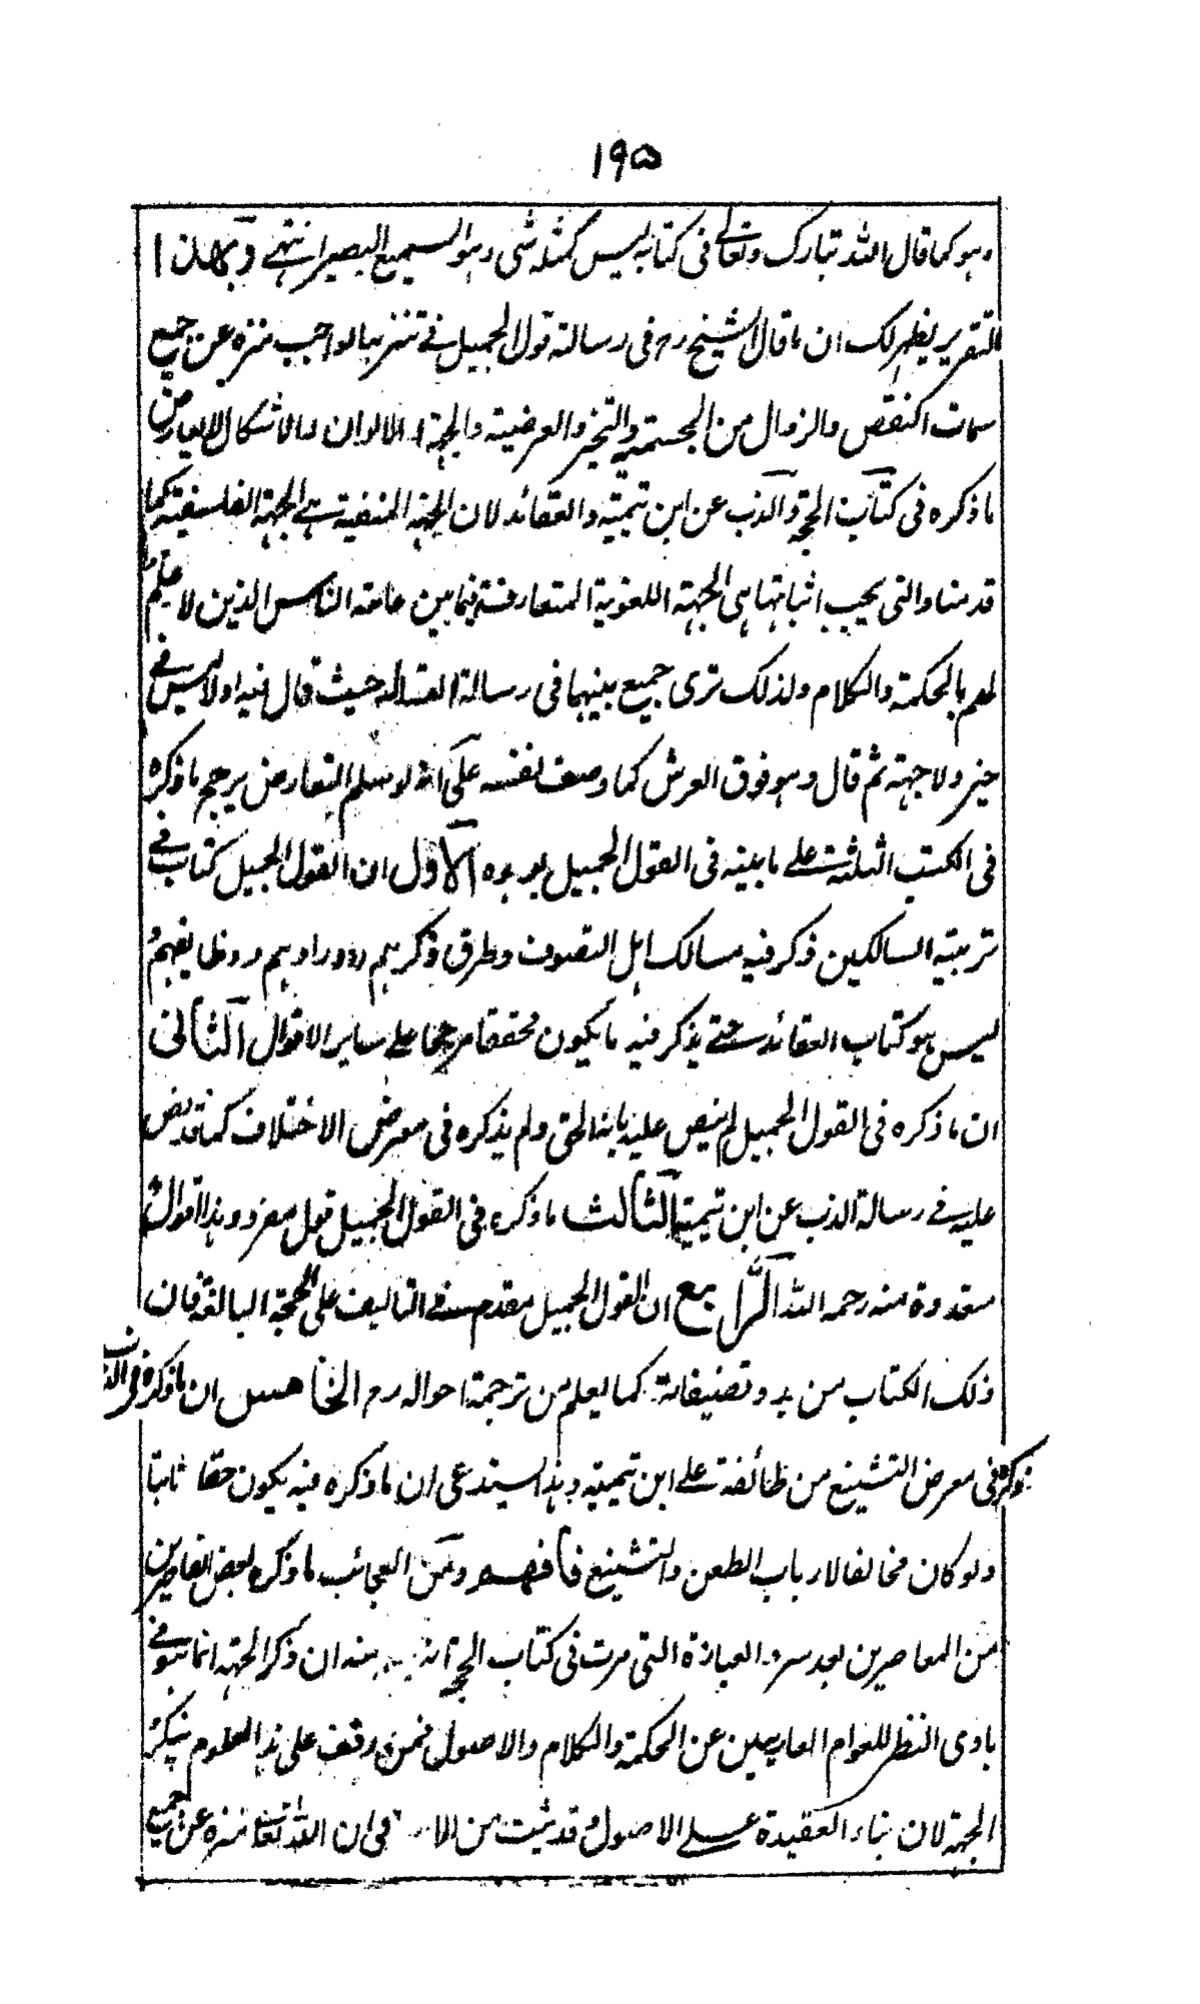 ١٩٥
وهو كما قال الله تبارك وتعالى في كتابه ليس كمثله شي وهو السميع البصير انتهى وبهذا
التقرير يظهر لك ان ما قال الشيخ رح في رسالة قول الجميل في تنزيه الواجب منزه عن جميع
سمات النقص والزوال من الجسمية والتحيز والعرضية والجهة والالوان والاشكال لا يعارض
ما ذكره في كتاب الحجة والذب عن ابن تيمية والعقائد لان الجهة المنفية هي الجهة الفلسفية كما
قدمنا والتي يجب اثباتها هي الجهة اللغوية المتعارفة فيما بين عامة الناس الذين لا علم
لهم بالحكمة والكلام ولذلك ترى جمع بينهما في رسالة العقائد حيث قال فيه اولا ليس في
حيز ولا جهة ثم قال وهو فوق العرش كما وصف نفسه على انه لو سلم التعارض يرجح ما ذكره
في الكتب الثلثة على ما بينه في القول الجميل بوجوه الاول ان القول الجميل كتاب في
تربية السالكين ذكر فيه مسالك اهل التصوف وطرق ذكرهم واورادهم ووظايفهم
ليس هو كتاب العقائد حتى يذكر فيه ما يكون محققا مرجحا على ساير الاقوال الثاني
ان ما ذكره في القول الجميل لم ينص عليه بانه الحق ولم يذكره في معرض الاختلاف كما قد نص
عليه في رسالة الذب عن ابن تيمية الثالث ما ذكره في القول الجميل قول مفرد وهذا اقوال
معدودة منه رحمه الله الرابع ان القول الجميل مقدم في التاليف على الحجة البالغة فان
ذلك الكتاب من بدو تصنيفاته كما يعلم من ترجمة احواله رح الخامس ان ما ذكره في الذب
ذكره في معرض التشنيع من طائفة على ابن تيمية وهذا يستدعى ان ما ذكره فيه يكون حقا ثابتا
ولو كان مخالفا لارباب الطعن والتشنيع فافهم ومن العجائب ما ذكره بعض القاصرين
من المعاصرين بعد سرد العبارة التي مرت في كتاب الحجة منه ان ذكر الجهة انما هو في
بادى النظر للعوام العارين عن الحكمة والكلام والاصول فمن وقف على هذه العلوم ينكر
الجهة لان بناء العقيدة على الاصول وقد ثبت من الا في ان الله تعالى منزه عن جميع